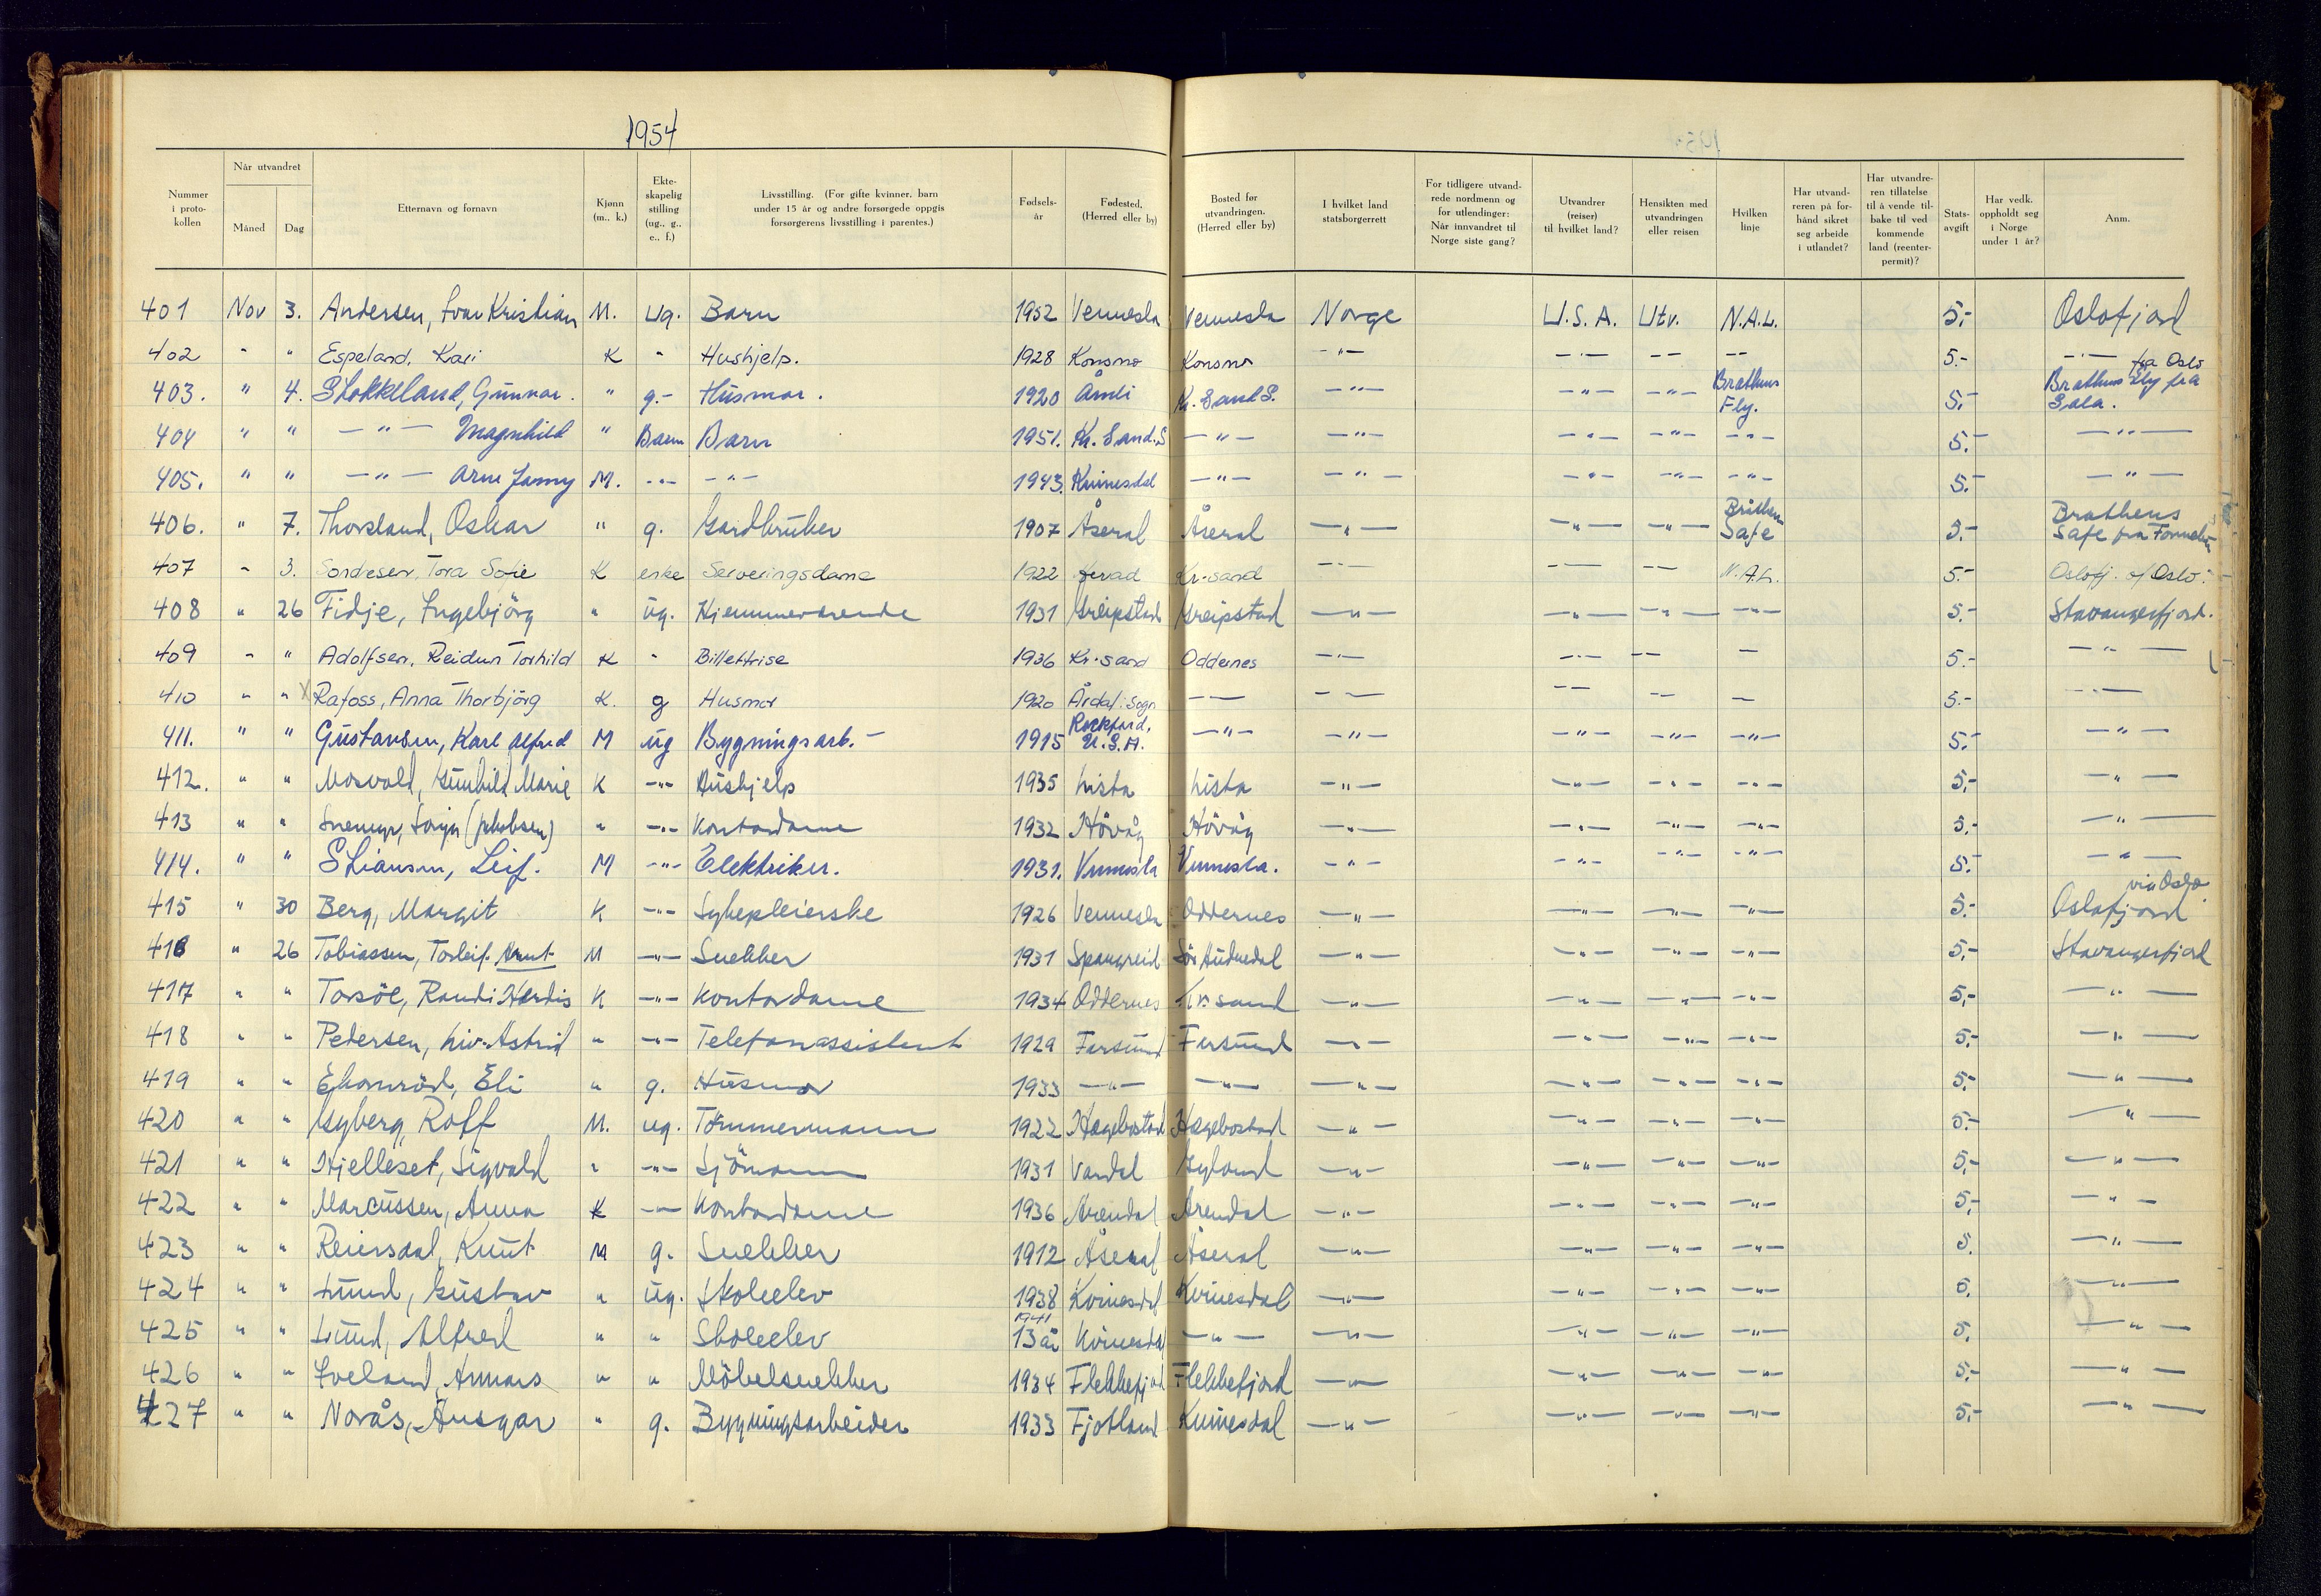 1954
Nummer i proto-kollen | Når utvandret Måned Dag | Etternavn og fornavn | Kjønn (m., k.) | Ekte-skapelig stilling (ug., g., e., f.) | Livsstilling. (For gifte kvinner, barn under 15 år og andre forsørgede oppgis forsørgerens livsstilling i parentes.) | Fødsels-år | Fødested. (Herred eller by) | Bosted før utvandringen. (Herred eller by) | I hvilket land statsborgerrett | For tidligere utvand-rede nordmenn og for utlendinger: Når innvandret til Norge siste gang? | Utvandrer (reiser) til hvilket land? | Hensikten med utvandringen eller reisen | Hvilken linje | Har utvand-reren på for-hånd sikret seg arbeide i utlandet? | Har utvandre-ren tillatelse til å vende til-bake til ved kommende land (reenter-permit)? | Stats-avgift | Har vedk. oppholdt seg i Norge under 1 år? | Anm.
401 Nov 3. Andersen, Ivar Kristian M. Ug. Barn 1952 Vennesla Vennesla Norge U.S.A. Utv. N.A.L. 5,- Oslofjord
402 - " Espeland, Kari K - Hushjelp. 1928 Konsmo Konsmo -"- -"- -- -- 5.- -"- fra Oslo
403. " 4. Stokkeland, Gunnar. " g.- Husmor. 1920 Åmli K. Sand S. -"- -"- -"- Brathens Fly. 5.- Brathens Fly fra Sola.
404 " " -"- Magnhild " Barn Barn 1951. Kr. Sand. S -"- -"- -"- -"- -"- 5.- -"-
405. " " -"- Arne Jonny M. -"- -"- 1943. Kvinesdal -"- -"- -"- -"- -"- 5.- -"-
406. " 7. Thorsland, Oskar " g. Gardbruker 1907 Åseral Åseral -"- -"- -"- Bråthens Safe 5.- Brathens Safe fra Fornebu
407 - 3. Sondresen, Tora Sofie K enke Serveringsdame 1922 Herad Kr.sand -"- -- -- N.A.L. 5.- Oslofj. af Oslo.
408 " 26 Fidje, Ingebjörg " ug. Hjemmeværende 1931 Greipstad Greipstad -"- -"- -"- -"- 5.- Stavangerfjord.
409 - " Adolfsen, Reidun Torhild K - Billettrise 1936 Kr.sand Oddernes -"- -"- -- - 5.- -"-
410 " " Rafoss, Anna Thorbjörg K. g Husmor 1920 Årdal. Sogn -- -- -- -- - 5.- -"-
411. " " Gustavsen, Karl Alfred M ug Bygningsarb.- 1915 Rockford, U.S.A. -"- -"- -"- -"- -"- 5.- -"-
412. " " Mosvold, Gunhild Marie K -"- Hushjelp 1935 Lista Lista -"- -"- -"- -"- 5,- -"-
413 " " (Jakobsen) " -"- Kontordame 1932 Hövåg Hövåg -"- -"- -"- -"- 5,- -"-
414. " " Stiansen, Leif. M -"- Elektriker. 1931. Vennesla Vennesla. -"- -"- -"- -"- 5.- -"-
415 " 30 Berg, Margit K -"- Sykepleierske 1926 Vennesla Oddernes -"- -"- -"- -"- 5.- Oslofjord via Oslo
416 " 26 Tobiassen, Torleif Knut M -"- Snekker 1931 Spangreid Sör Audnedal -"- -"- -"- -"- 5,- Stavangerfjord
417 " " Torsöe, Randi Herdis K -"- Kontordame 1934 Oddernes Kr.sand -"- -"- -"- -"- 5,- -"-
418 " " Pedersen, Liv Astrid " -"- Telefonassistent 1929 Farsund Farsund -"- -"- -"- -"- 5,- -"-
419 " " Ekornröd, Eli " g. Husmor 1933 -"- -"- -"- -"- -"- -"- 5,- -"-
420 " " Gyberg, Rolf M. ug. Tömmermann 1922 Hægebostad Hægebostad -"- -"- -"- -"- 5.- -"-
421 " " Hjelleset, Sigvald " -"- Sjömann 1931 Vardal Gyland -"- -"- -"- -"- 5,- -"-
422 " " Marcussen, Anna K -"- Kontordame 1936 Arendal Arendal -"- -"- -"- -"- 5,- -"-
423 " " Reiersdal, Knut M g. Snekker 1912 Åseral Åseral -"- -"- -"- -"- 5. -"-
424 " " Lund, Gustav " ug. Skoleelev 1938 Kvinesdal Kvinesdal -"- -"- -"- -"- 5. -"-
425 " " Lund, Alfred " " Skoleelev 1941 13 år Kvinesdal -"- -"- -"- -"- -"- 5, -"-
426 " " Iveland, Annars " " Möbelsnekker 1934 Flekkefjord Flekkefjord -"- -"- -"- -"- 5,- -"-
427 " " Norås, Ansgar " g. Bygningsarbeider 1933 Fjotland Kvinesdal -"- -"- -"- -"- 5,- -"-